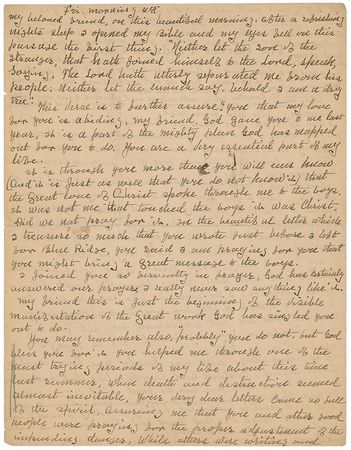 Fri. morning 4th.
My beloved friend, on this beautiful morning, after a refreshing
nights sleep I opened my Bible and my eyes fell on this
passage the first thing. "Neither let the son of the
stranger, that hath joined himself to the Lord, speak,
saying, The Lord hath utterly separated me from his
people. Neither let the eunuch say, Behold I am a dry
tree."
This verse is to further assure you that my love
for you is abiding, my friend, God gave you to me last
year, it is a part of the mighty plan God has mapped
out for you to do. You are a very essential part of my
life.
It is through you more than you will ever know
(and it is just as well that you do not know it) that
the Great love of Christ spoke through me to the boys,
it was not me that touched the boys it was Christ.
Did we not pray for it. In the beautiful letter which
I treasure so much that you wrote just before I left
for Blue Ridge, you said I am praying for you that
you might bring a great message to the boys.
I joined you so fervently in prayer, God has certainly
answered our prayers I really never saw anything like it.
My friend this is just the beginning of the visible
manifestation of the Great work God has singled you
out to do.
You may remember also, "probably" you do not, but God
bless you for it you helped me through one of the
most trying periods of my life about this time
last summer, when death and destruction seemed
almost inevitable, your very dear letters come so full
of the spirit, assuring me that you and other good
people were praying for the proper adjustment of the
impending danger. While others were writing and